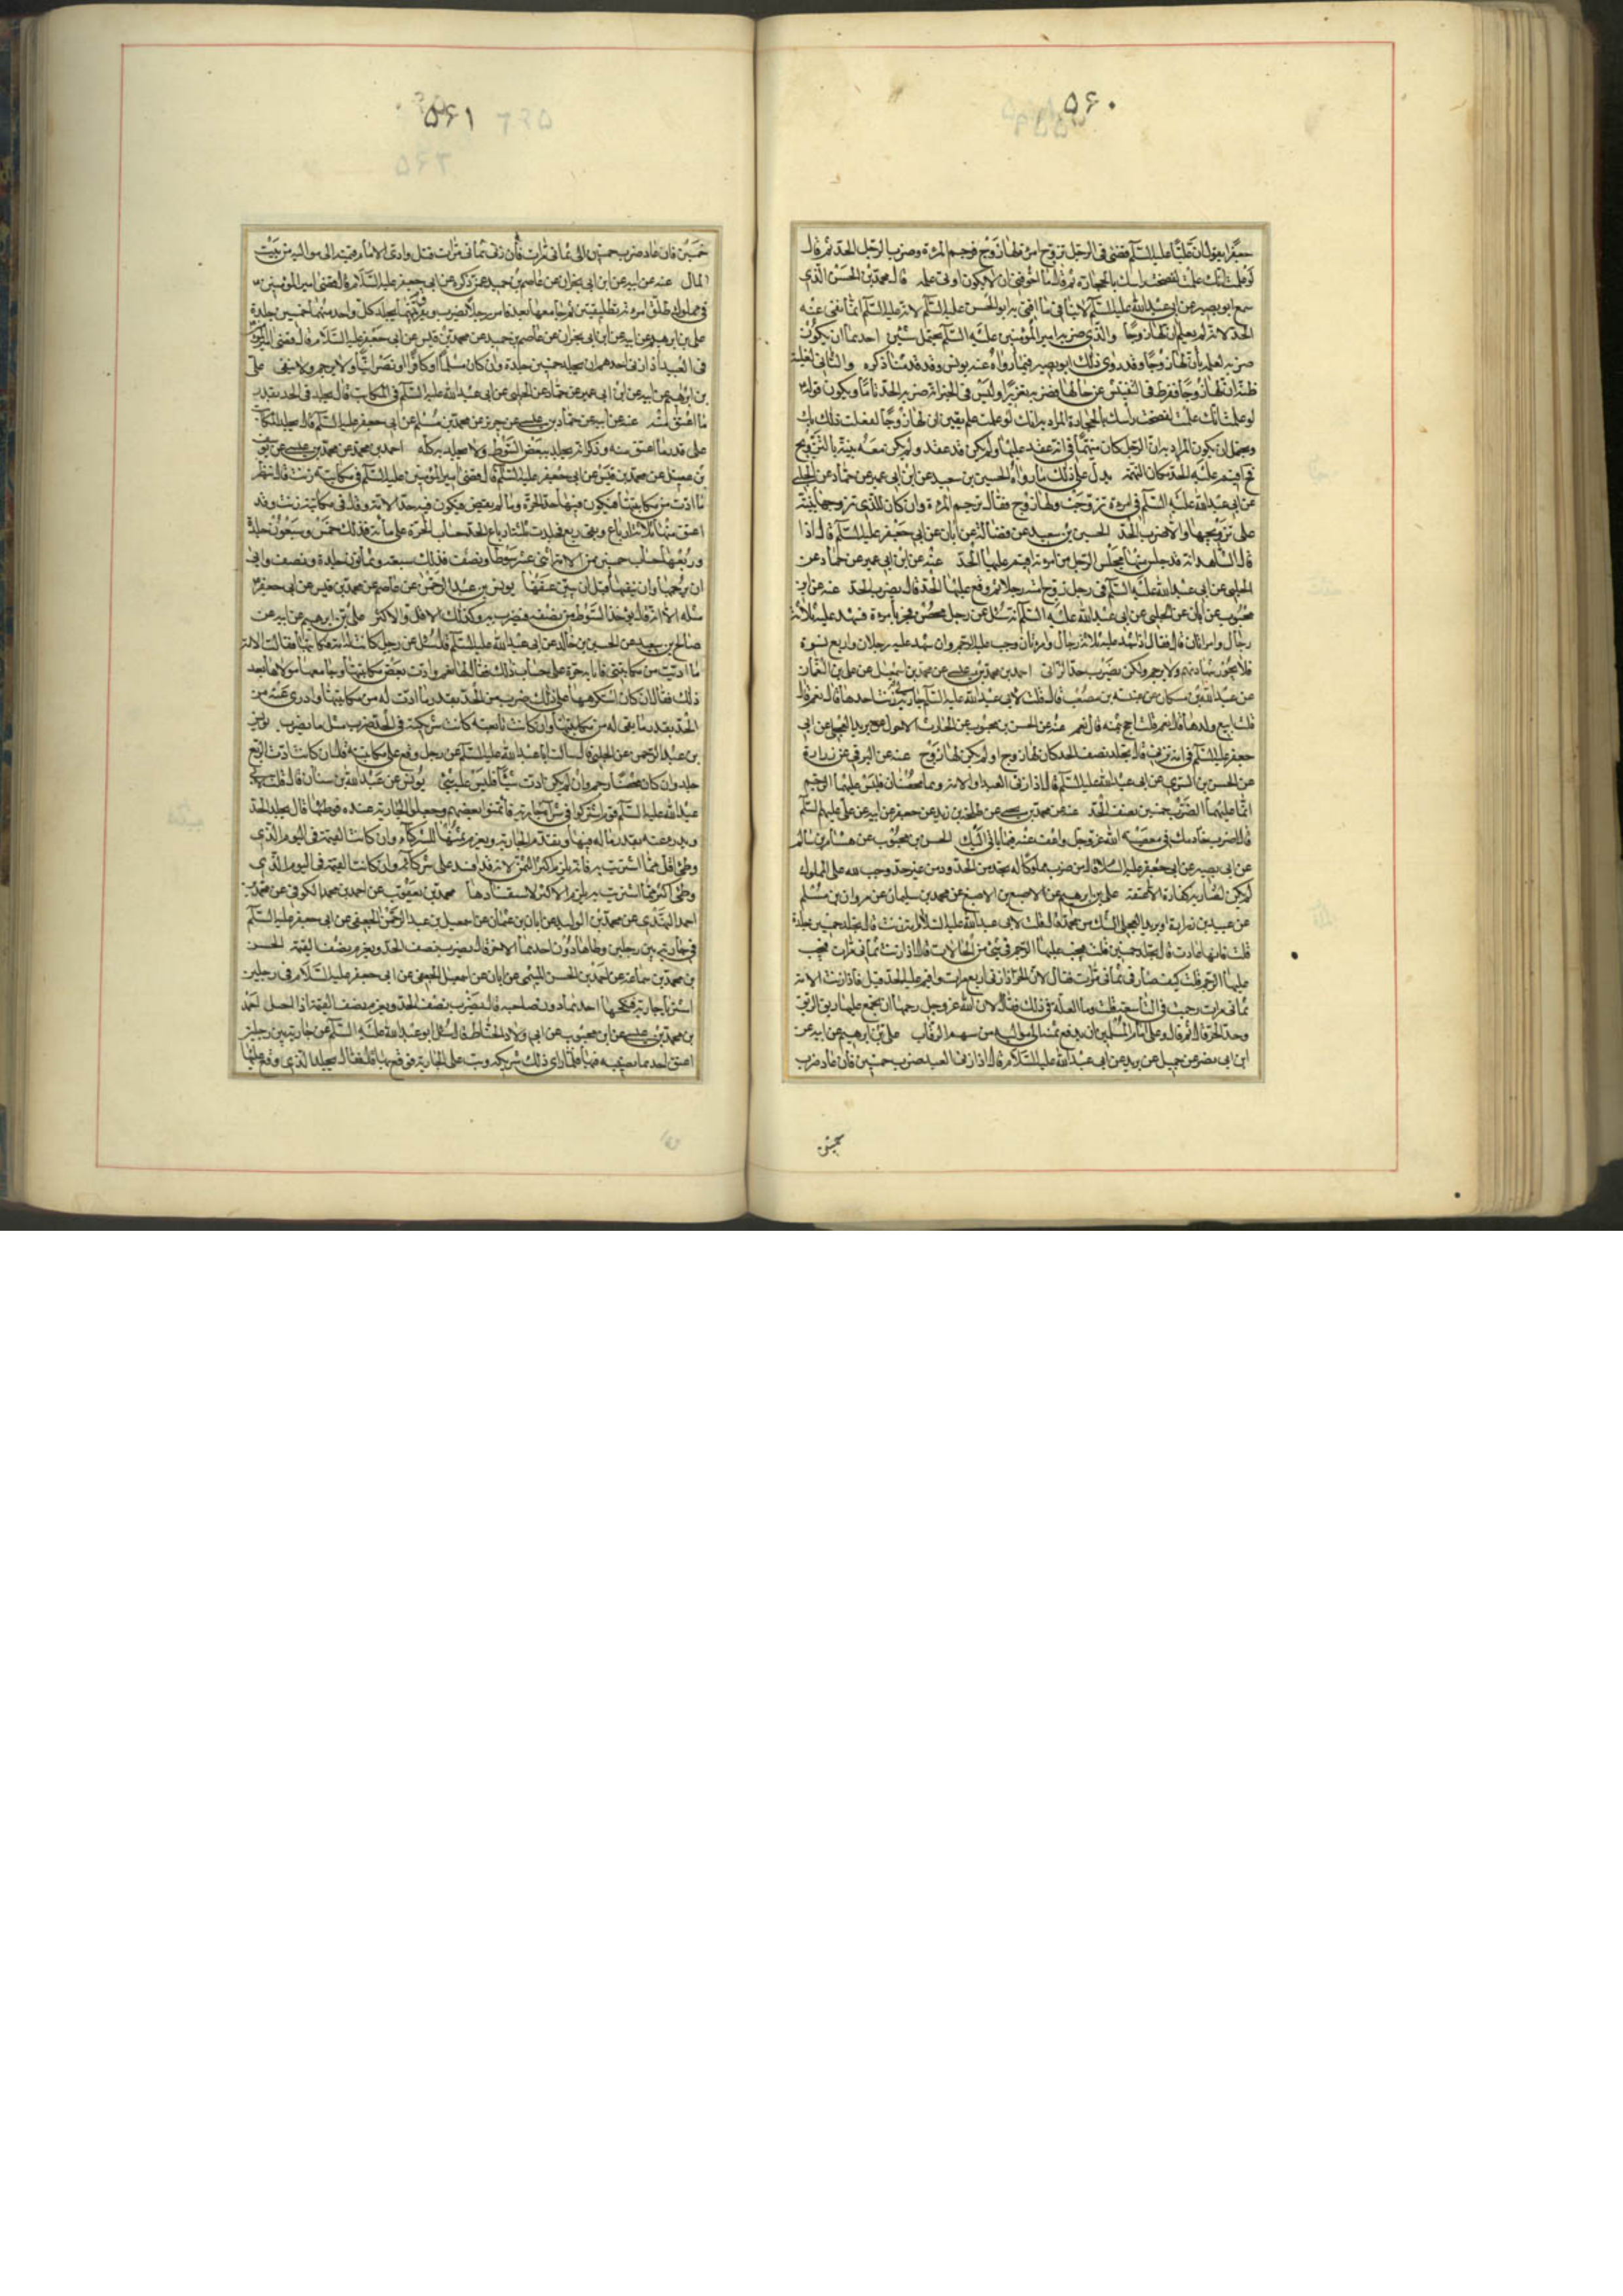 ۵۶۰
جعفرا يقول ان عليا عليه السلم قضى فى الرجل تزوج امرئة لها زوج فرجم المرءة وضرب الرجل الحد ثم قال
لو علمت انك علمت لفضخت راسك بالحجارة ثم قال ما اخوفنى ان لا يكون اوتى علمه قال محمد بن الحسن الذى
سمع ابو بصير من ابى عبد الله عليه السلم لا ينافى ما افتى به ابو الحسن عليه السلم لانه عليه السلم انما نفى عنه
الحد لانه لم يعلم ان لها زوجا والذى ضربه امير المؤمنين عليه السلم يحتمل شيئين احدهما ان يكون
ضربه لعلمه بان لها زوجا وقد روى ذلك ابو بصير فيما رواه عنه يونس وقد قدمنا ذكره والثانى لغلبة
ظنه ان لها زوجا ففرط فى التفتيش عن حالها فضربه تعزيرا وليس فى الخبر انه ضربه الحد تاما ويكون قوله
لو علمت انك علمت لفضخت راسك بالحجارة المراد به انك لو علمت علم يقين ان لها زوجا لفعلت ذلك بك
ويحتمل ان يكون المراد به ان الرجل كان متهما فى انه عقد عليها ولم يكن قد عقد ولم يكن معه بينة بالتزويج
فح اقيم عليه الحد لمكان التهمة يدل على ذلك ما رواه الحسين بن سعيد عن ابن ابى عمير عن حماد عن الحلبى
عن ابى عبد الله عليه السلم فى امرءة تزوجت ولها زوج فقال ترجم المرءة وان كان للذى تزوجها بينة
على تزويجها والا ضرب الحد الحسين بن سعيد عن فضالة عن ابان عن ابى جعفر عليه السلم قال اذا
قال الشاهد انه قد جلس منها مجلس الرجل من امرءته اقيم عليها الحد عنه عن ابن ابى عمير عن حماد عن
الحلبى عن ابى عبد الله عليه السلم فى رجل زوج امته رجلا ثم وقع عليها الحد قال يضرب الحد عنه عن ابن
محبوب عن ابان عن الحلبى عن ابى عبد الله عليه السلم انه سئل عن رجل محصن فجر بامرءة فشهد عليه ثلاثة
رجال وامراتان قال فقال اذا شهد عليه ثلاثة رجال وامرءتان وجب عليه الرجم وان شهد عليه رجلان واربع نسوة
فلا يجوز شهادتهم ولا يرجم ولكن يضرب حد الزانى احمد بن محمد بن عيسى عن محمد بن اسمعيل عن على بن النعمان
عن عبد الله بن مسكان عن عنبسة بن مصعب قال قلت لابى عبد الله عليه السلم جارية لى زنت احدها قال نعم قال
قلت ابيع ولدها قال نعم قلت احج بثمنه قال نعم عنه عن الحسن بن محبوب عن الحارث الاحول عن بريد العجلى عن ابى
جعفر عليه السلم فى امة تزنى قال يجلد نصف الحد كان لها زوج او لم يكن لها زوج عنه عن البرقى عن زرارة
عن الحسن بن السرى عن ابى عبد الله عليه السلم قال اذا زنى العبد او الامة وهما محصنان فليس عليهما الرجم
انما عليهما الضرب خمسين نصف الحد عنه عن محمد بن يحيى عن طلحة بن زيد عن جعفر عن ابيه عن على عليهم السلم
قال اضرب خادمك فى معصية الله عز وجل واعف عنه فيما ياتى اليك الحسن بن محبوب عن هشام بن سالم
عن ابى بصير عن ابى جعفر عليه السلام قال من ضرب مملوكا له بحد من الحدود من غير حد وجب لله على المملوك
لم يكن لضاربه كفارة الا عتقه على بن ابرهيم عن الاصبغ بن الاصبغ عن محمد بن سليمان عن مروان بن مسلم
عن عبيد بن زرارة او بريد العجلى الشك من محمد قال قلت لابى عبد الله عليه السلام امة زنت قال تجلد خمسين جلدة
قلت فانها عادت قال تجلد خمسين قلت فيجب عليها الرجم فى شىء من الحالات قال اذا زنت ثمانى مرات يجب
عليها الرجم قلت كيف صار فى ثمانى مرات فقال لان الحر اذا زنى اربع مرات واقيم عليه الحد قتل فاذا زنت الامة
ثمانى مرات رجمت فى التاسعة قلت وما العلة فى ذلك فقال لان الله عز وجل رحمها ان يجمع عليها ربق الرق
وحد الحر قال ثم قال وعلى امام المسلمين ان يدفع ثمنه الى مواليه من سهم الرقاب على بن ابرهيم عن ابيه عن
ابن ابى نصر عن جميل عن بريد عن ابى عبد الله عليه السلام قال اذا زنى العبد ضرب خمسين فان عاد ضرب
خمسين
۵۶۱
خمسين فان عاد ضرب خمسين الى ثمانى مرات فان زنى ثمانى مرات قتل وادى الامام قيمته الى مواليه من بيت
المال عنه عن ابيه عن ابن ابى نجران عن عاصم بن حميد عمن ذكره عن ابى جعفر عليه السلام قال قضى امير المؤمنين
فى مملوك طلق امرءته تطليقتين ثم جامعها بعد فامر رجلا يضربهما ويفرق بينهما يجلد كل واحد منهما خمسين جلدة
على بن ابرهيم عن ابيه عن ابن ابى نجران عن عاصم بن حميد عن محمد بن قيس عن ابى جعفر عليه السلام قال قضى امير المؤمنين
فى العبيد اذا زنى احدهم ان يجلد خمسين جلدة وان كان مسلما او كافرا او نصرانيا ولا يرجم ولا ينفى على
بن ابرهيم عن ابيه عن ابن ابى عمير عن حماد عن الحلبى عن ابى عبد الله عليه السلم فى المكاتب قال يجلد فى الحد بقدر
ما اعتق منه عنه عن ابيه عن حماد بن عيسى عن حريز عن محمد بن مسلم عن ابى جعفر عليه السلم قال يجلد المكاتب
على قدر ما اعتق منه وذكر انه يجلد ببعض السوط ولا يجلد به كله احمد بن محمد عن محمد بن عيسى عن يوسف
بن عقيل عن محمد بن قيس عن ابى جعفر عليه السلم قال قضى امير المؤمنين عليه السلم فى مكاتبة زنت قال ينظر
ما ادت من مكاتبتها فيكون فيها حد الحرة وما لم يقض فيكون فيه حد الامة وقال فى مكاتبة زنت وقد
اعتق منها ثلاثة ارباع وبقى ربع فجلدت ثلاثة ارباع الحد حساب الحرة على مائة فذلك خمس وسبعون جلدة
وربعها حساب خمسين من الامة اثنى عشر سوطا ونصف فذلك سبعة وثمانون جلدة ونصف وابى
ان يرجمها وان ينفيها قبل ان يبين عتقها يونس بن عبد الرحمن عن عاصم عن محمد بن قيس عن ابى جعفر
مثله الا انه قال يؤخذ السوط من نصفه فيضرب به وكذلك الاقل والاكثر على بن ابرهيم عن ابيه عن
صالح بن سعيد عن الحسين بن خالد عن ابى عبد الله عليه السلم قال سئل عن رجل كانت له امة فكاتبها فقالت الامة
ما اديت من مكاتبتى فانا به حرة على حساب ذلك فقال لها نعم وادت بعض مكاتبتها وجامعها مولاها بعد
ذلك فقال ان كان استكرهها على ذلك ضرب من الحد بقدر ما ادت له من مكاتبتها وادرئ عنه من
الحد بقدر ما بقى له من مكاتبتها وان كانت تابعته كانت شريكته فى الحد ضربت مثل ما يضرب يونس
بن عبد الرحمن عن الحلبى قال سالت ابا عبد الله عليه السلم عن رجل وقع على مكاتبته قال ان كانت ادت الربع
جلد وان كان محصنا رجم وان لم يكن ادت شيئا فليس عليه شىء يونس عن عبد الله بن سنان قال قلت لابى
عبد الله عليه السلم قوم اشتركوا فى شراء جارية فائتمنوا بعضهم وجعلوا الجارية عنده فوطئها قال يجلد الحد
ويدرء عنه بقدر ما له فيها وتقوم الجارية ويغرم ثمنها للشركاء وان كانت القيمة فى اليوم الذى
وطئ اقل مما اشتريت به فانه يلزم اكثر الثمن لانه قد افسد على شركائه وان كانت القيمة فى اليوم الذى
وطئ اكثر مما اشتريت به يلزم الاكثر لاستفسادها محمد بن يعقوب عن احمد بن محمد الكوفى عن محمد بن
احمد النهدى عن محمد بن الوليد عن ابان بن عثمان عن اسمعيل بن عبد الرحمن الجعفى عن ابى جعفر عليه السلم
فى جارية بين رجلين وطاها دون احدهما الاخر قال يضرب نصف الحد ويغرم نصف القيمة الحسن
بن محمد بن سماعة عن احمد بن الحسن الميثمى عن ابان عن اسمعيل الجعفى عن ابى جعفر عليه السلام فى رجلين
اشتريا جارية فنكحها احدهما دون صاحبه قال يضرب نصف الحد ويغرم نصف القيمة اذا احبل احمد
بن محمد بن عيسى عن ابن محبوب عن ابى ولاد الحناط قال سئل ابو عبد الله عليه السلم عن جارية بين رجلين
اعتق احدهما نصيبه فيها فلما راى ذلك شريكه وثب على الجارية فوقع بها قال فقال يجلد الذى وقع عليها